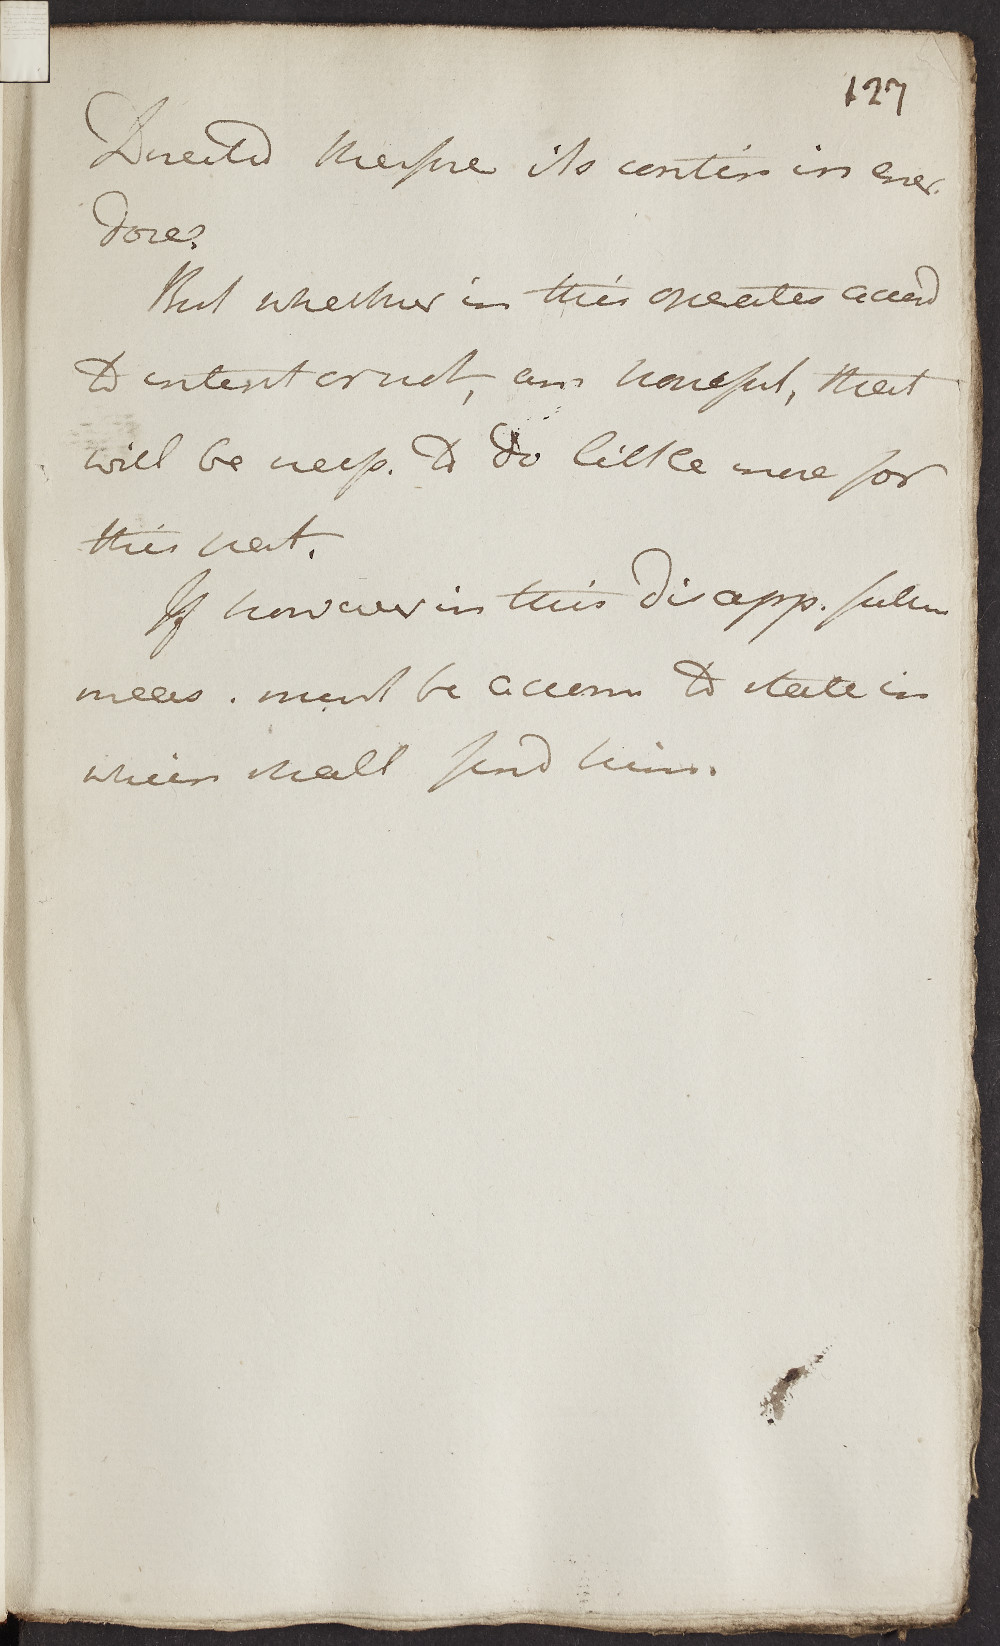 127
Directed therfore its contin in ever.
dose.
But whether in this operates accord
to intent or not, am hopeful, that
will be ness. to do little more for
this heat.
If however in this disapp. futur
meas. must be accom to state in
which shall find him.